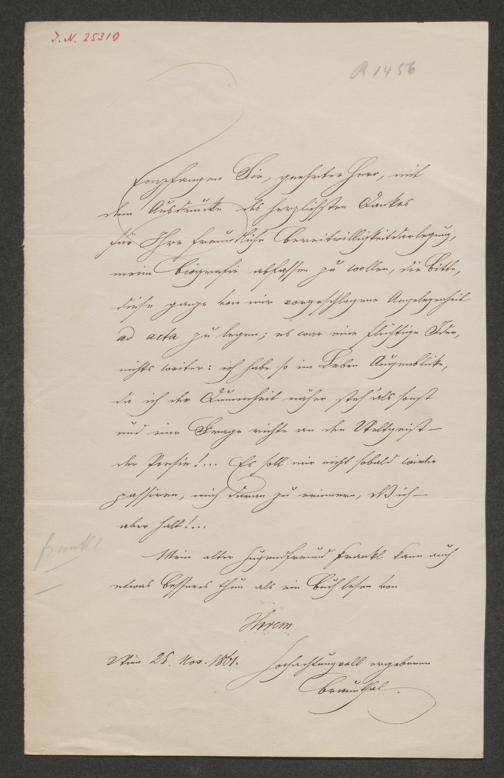 I.N. 25310
R 1456
Empfangen Sie, geehrter Herr, mit
dem Ausdrucke des herzlichsten Dankes
für Ihre freundliche Bereitwilligkeitsdarlegung,
meine Biografie abfassen zu wollen, die Bitte,
diese ganze von mir vorgeschlagene Angelegenheit
ad acta zu legen; es war eine flüchtige Idee,
nichts weiter: ich habe so im Leben Augenblicke,
da ich der näher steh' als sonst
und eine Frage richte an den Weltgeist –
der Poesie!... Es soll mir nicht sobald wieder
passiren, mich daran zu erinnern, –
aber halt!...
Mein alter Jugendfreund Frankl kann auch
etwas Besseres thun als ein Buch lesen von
Frankl
Ihrem
Wien 26. Nov. 1861.
hochachtungsvoll ergebenen
Braunthal.